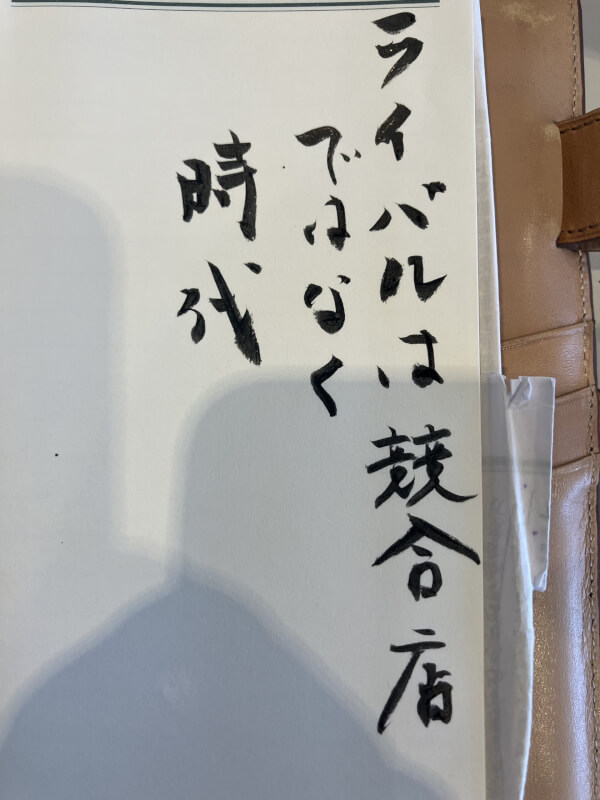 ライバルは競合店
ではなく
時代